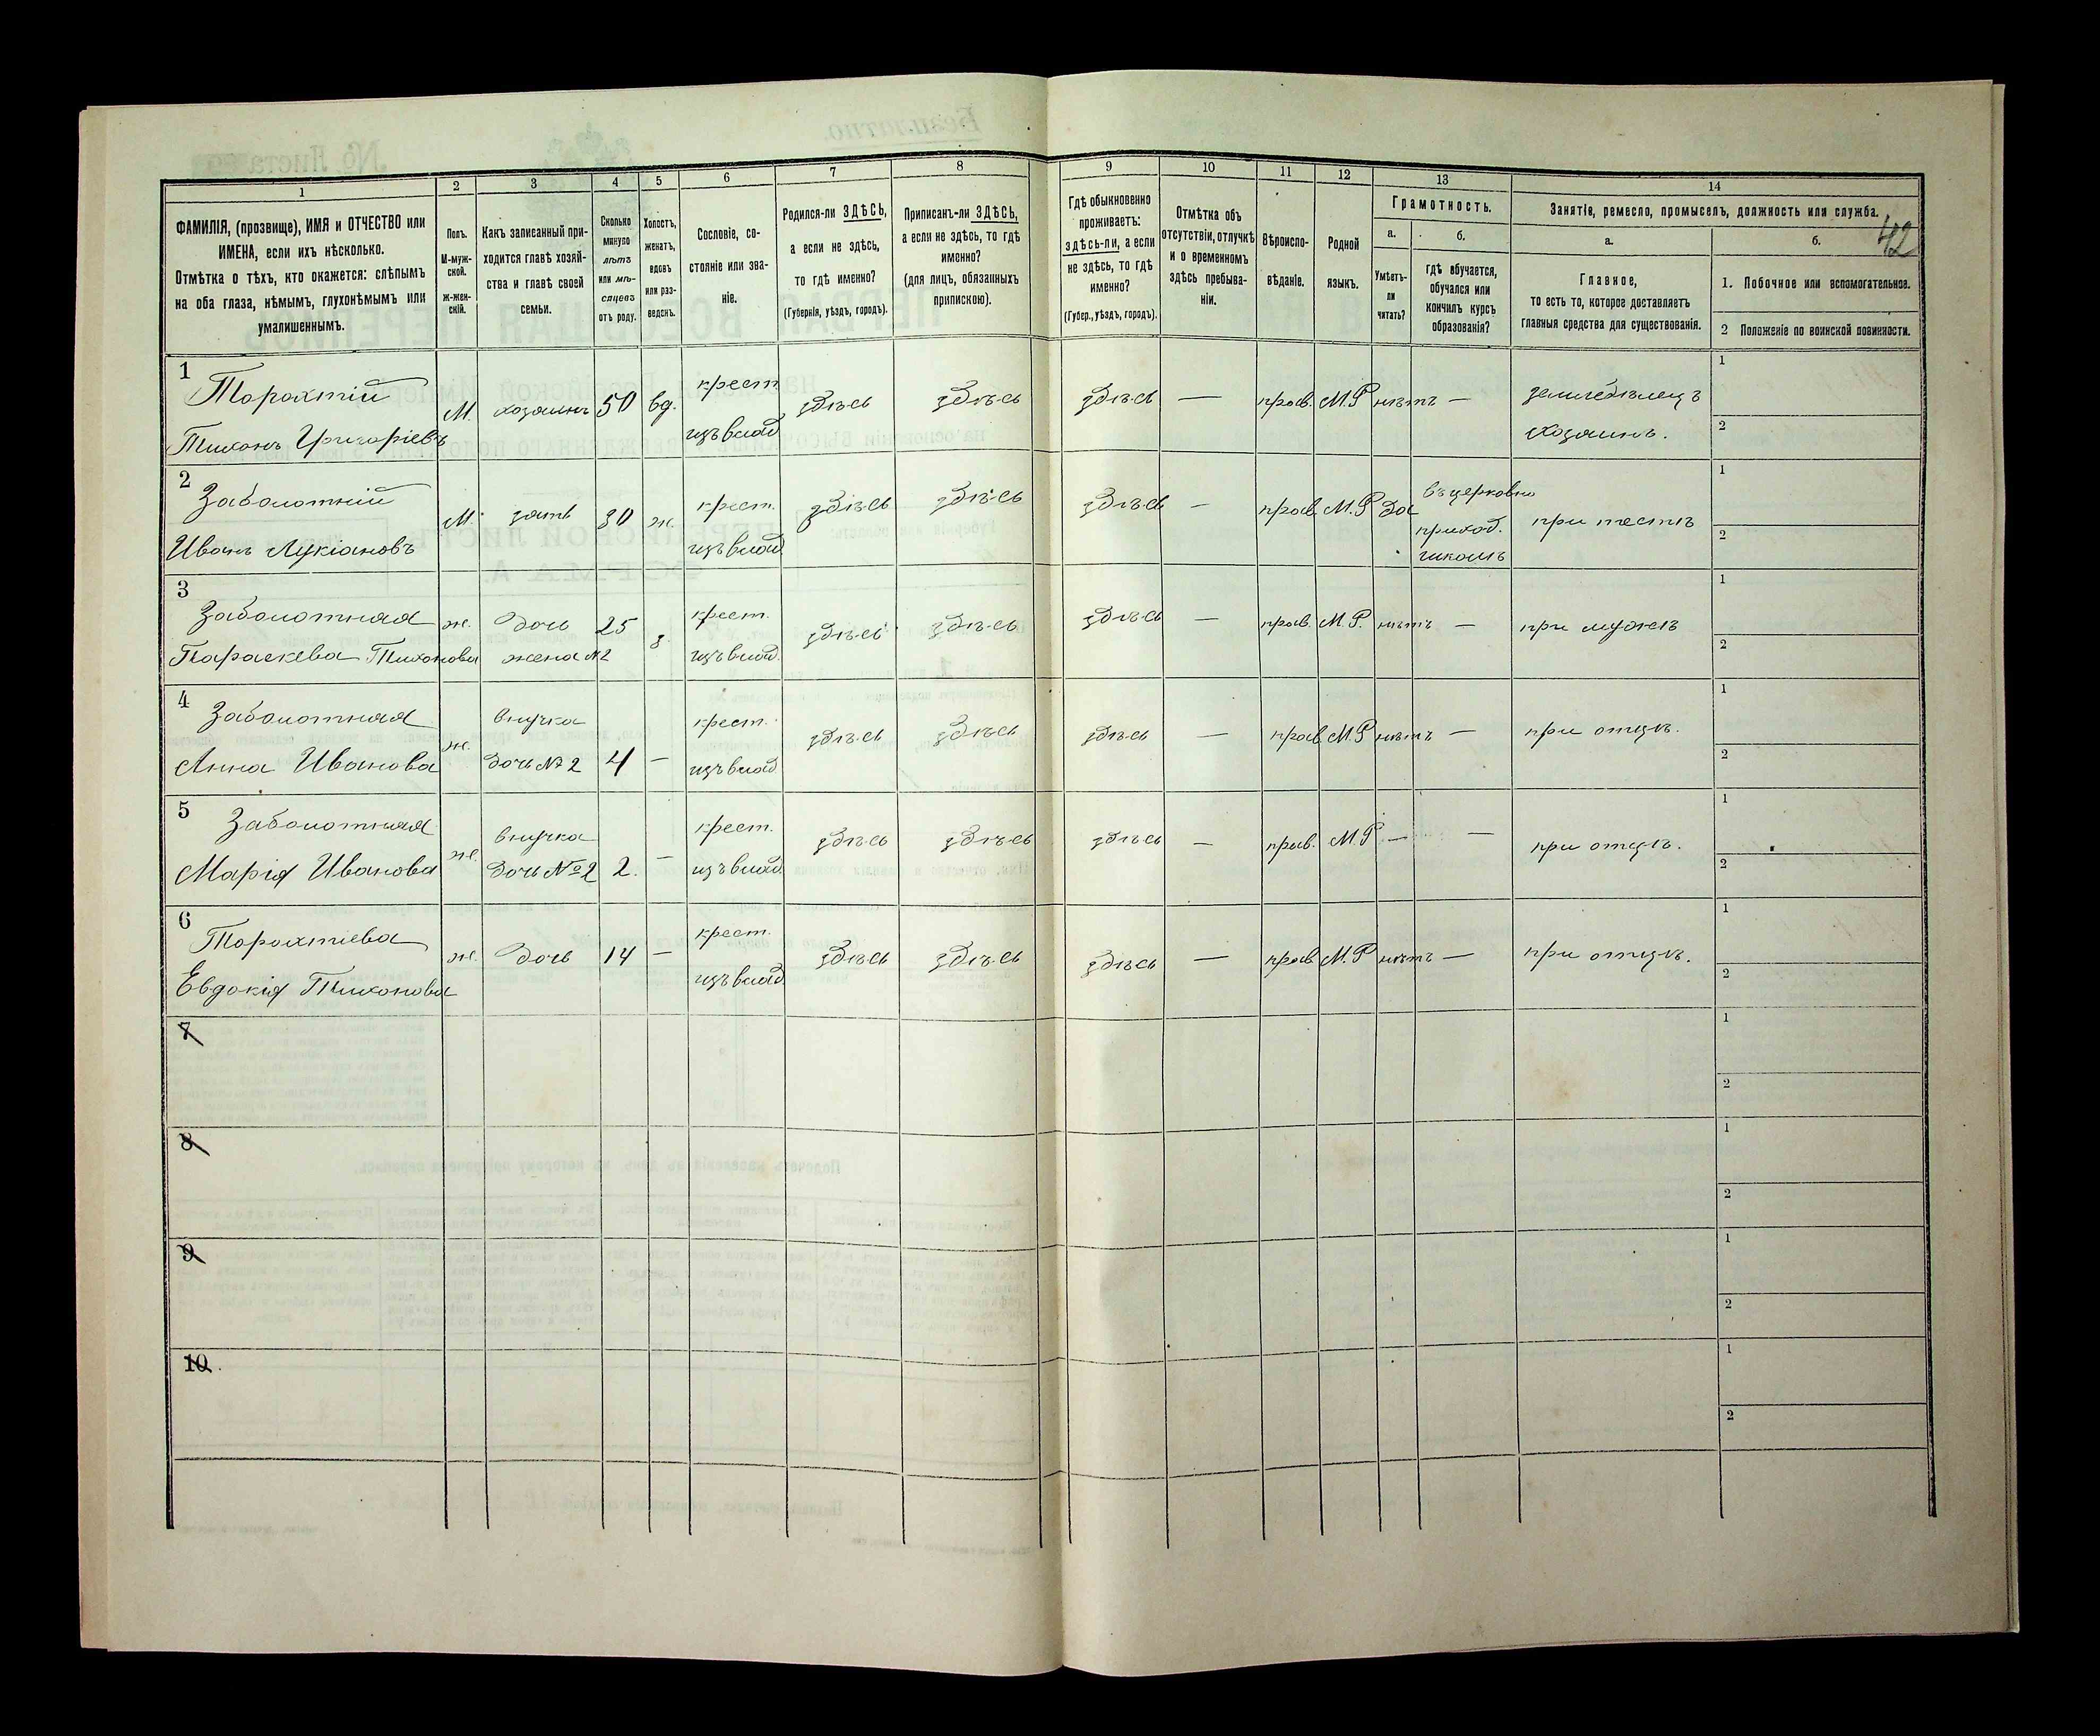 1 2 3 4 5 6 7 8 9 10 11 12 13 14
ФАМИЛІЯ, (прозвище), ИМЯ и ОТЧЕСТВО или
ИМЕНА, если ихъ нѣсколько.
Отмѣтка о тѣхъ, кто окажется: слѣпымъ
на оба глаза, нѣмымъ, глухонѣмымъ или
умалишеннымъ.
Полъ.
М-муж-
ской.
Ж-жен-
скій.
Какъ записанный при-
ходится главѣ хозяй-
ства и главѣ своей
семьи.
Сколько
минуло
лѣтъ
или мѣ-
сяцевъ
отъ роду.
Холостъ,
женатъ,
вдовъ
или раз-
веденъ.
Сословіе, со-
стояніе или зва-
ніе.
Родился-ли ЗДѢСЬ,
а если не здѣсь,
то гдѣ именно?
(Губернія, уѣздъ, городъ).
Приписанъ-ли ЗДѢСЬ,
а если не здѣсь, то гдѣ
именно?
(для лицъ, обязанныхъ
припискою).
Гдѣ обыкновенно
проживаетъ:
здѣсь-ли, а если
не здѣсь, то гдѣ
именно?
(Губер., уѣздъ, городъ).
Отмѣтка объ
отсутствіи, отлучкѣ
и о временномъ
здѣсь пребыва-
ніи.
Вѣроиспо-
вѣданіе.
Родной
языкъ.
Грамотность.
а. б.
Умѣетъ-
ли
читать?
гдѣ обучается,
обучался или
кончилъ курсъ
образованія?
Занятіе, ремесло, промыселъ, должность или служба.
42
а. б.
Главное,
то есть то, которое доставляетъ
главныя средства для существованія.
1. Побочное или вспомогательное.
2 Положеніе по воинской повинности.
1
Торохтій
Тихонъ Григоріевъ
М. хозяинъ 50 вд.
крест.
изъ влад.
здѣсь здѣсь здѣсь — прав. М.Р нѣтъ —
земледѣлецъ
хозяинъ.
1
2
2
Заболотній
Иванъ Лукіановъ
М. зять 30 ж.
крест.
изъ влад.
здѣсь здѣсь здѣсь — прав. М.Р да
въ церковно
приход.
школѣ
при тестѣ
1
2
3
Заболотная
Параскева Тихонова
ж.
дочь
жена №2
25 з.
крест.
изъ влад.
здѣсь здѣсь здѣсь — прав. М.Р. нѣтъ — при мужѣ
1
2
4
Заболотная
Анна Иванова
ж.
внучка
дочь №2
4 —
крест.
изъ влад.
здѣсь здѣсь здѣсь — прав. М.Р нѣтъ — при отцѣ.
1
2
5
Заболотная
Марія Иванова
ж.
внучка
дочь №2
2. —
крест.
изъ влад.
здѣсь здѣсь здѣсь — прав. М.Р — — при отцѣ.
1
2
6
Торохтіева
Евдокія Тихонова
ж. дочь 14 —
крест.
изъ влад.
здѣсь здѣсь здѣсь — прав. М.Р нѣтъ — при отцѣ.
1
2
7
1
2
8
1
2
9
1
2
10
1
2